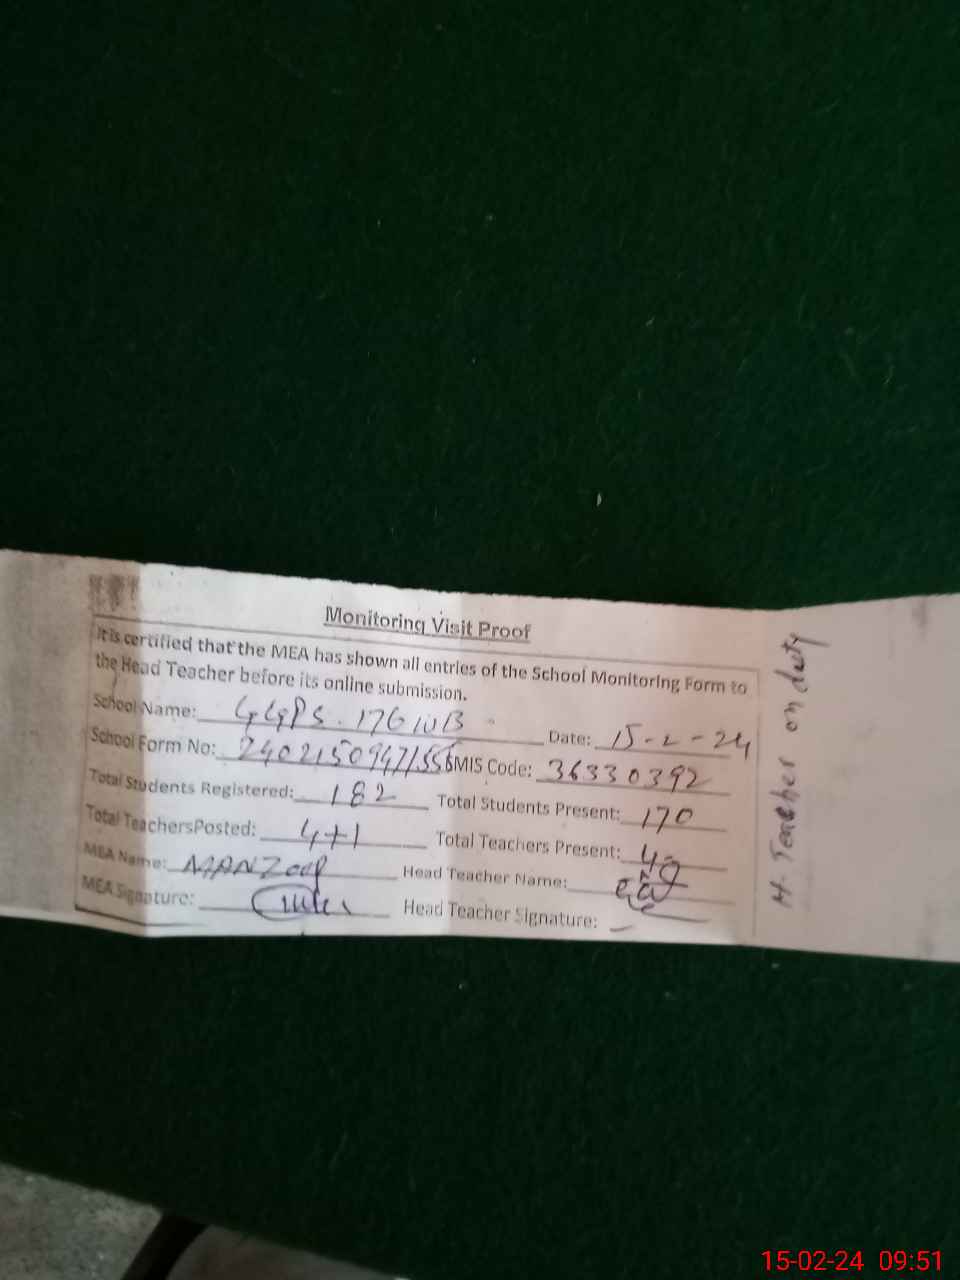 Monitoring Visit Proof
It is certified that the MEA has shown all entries of the School Monitoring Form to
the Head Teacher before its online submission.
School Name: GGPS. 176 WB Date: 15-2-24
School Form No: 24021509471556 EMIS Code: 36330392
Total Students Registered: 182 Total Students Present: 170
Total TeachersPosted: 4+1 Total Teachers Present: 4
MEA Name: MANZOOR Head Teacher Name:
MEA Signature: Head Teacher Signature:
H. Teacher on duty
15-02-24 09:51